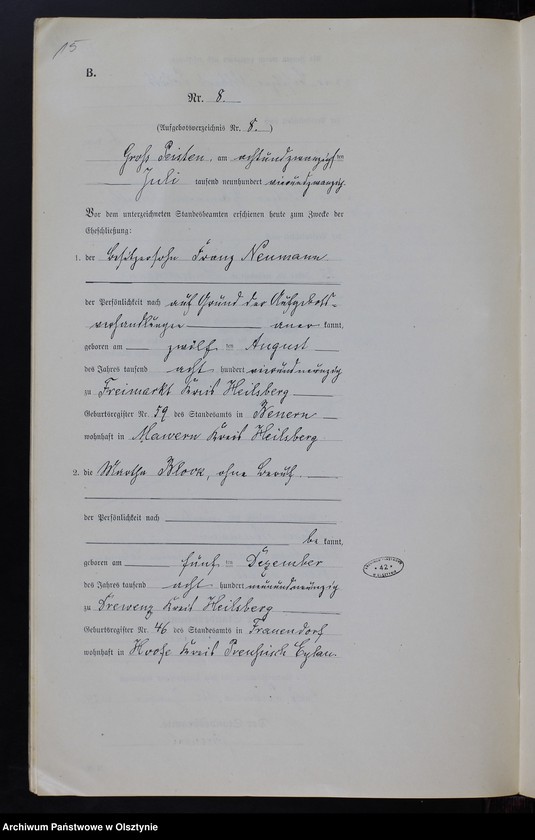 15
B.
Nr. 8.
(Aufgebotsverzeichnis Nr. 8.)
Gross Peisten, am achtundzwanzigsten
Juli tausend neunhundert vierundzwanzig.
Vor dem unterzeichneten Standesbeamten erschienen heute zum Zwecke der
Eheschließung:
1. der Besitzersohn Franz Neumann
der Persönlichkeit nach auf Grund der Aufgebots-
verhandlungen aner kannt,
geboren am zwölften August
des Jahres tausend acht hundert vierundneunzig
zu Freimarkt Kreis Heilsberg
Geburtsregister Nr. 59 des Standesamts in Benern
wohnhaft in Mawern Kreis Heilsberg
2. die Martha Block, ohne Beruf
der Persönlichkeit nach
be kannt,
geboren am fünften Dezember
des Jahres tausend acht hundert neunundneunzig
zu Drewenz Kreis Heilsberg
Geburtsregister Nr. 46 des Standesamts in Frauendorf
wohnhaft in Hoofe Kreis Preußisch Eylau.
42
Archiwum Państwowe w Olsztynie